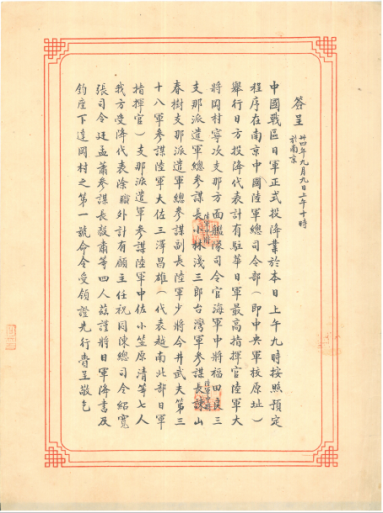 签呈
卅四年九月九日上午十時
於南京
中國戰區日軍正式投降業於本日上午九時按照預定
程序在南京中國陸軍總司令部(即中央軍校原址)
舉行日方投降代表計有駐華日軍最高指揮官陸軍大
將岡村寧次支那方面艦隊司令官海軍中將福田良三
支那派遣軍總參謀長小林淺三郎台灣軍參謀長諫山
春樹支那派遣軍總參謀副長陸軍少將今井武夫第三
十八軍參謀陸軍大佐三澤昌雄(代表越南北部日軍
指揮官)支那派遣軍參謀陸軍中佐小笠原清等七人
我方受降代表除職外計有顧主任祝同陳總司令紹寬
張司令廷孟蕭參謀長毅肅等四人茲謹將日軍降書及
鈞座下達岡村之第一號命令受領證先行賫呈敬乞